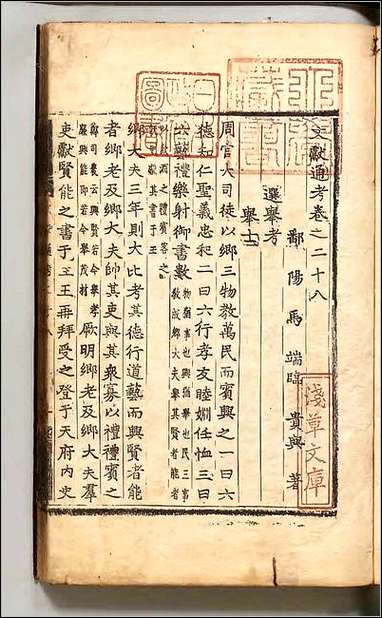 文獻通考卷之二十八
鄱陽馬端臨貴與著
選舉考
舉士
周官大司徒以鄉三物教萬民而賓興之一曰六
德知仁聖義忠和二曰六行孝友睦婣任恤三曰
六藝禮樂射御書數
物猶事也興猶舉也民三事
教成鄉大夫舉其賢者能者
以飲酒之禮賓客之
獻其書于王
鄉大夫三年則大比考其德行道藝而興賢者能
者鄉老及鄉大夫帥其吏與其眾寡以禮禮賓之
鄭司農云興賢若今舉孝
廉興能即若今舉茂材
厥明鄉老及鄉大夫羣
吏獻賢能之書于王王再拜受之登于天府內史
淺草文庫